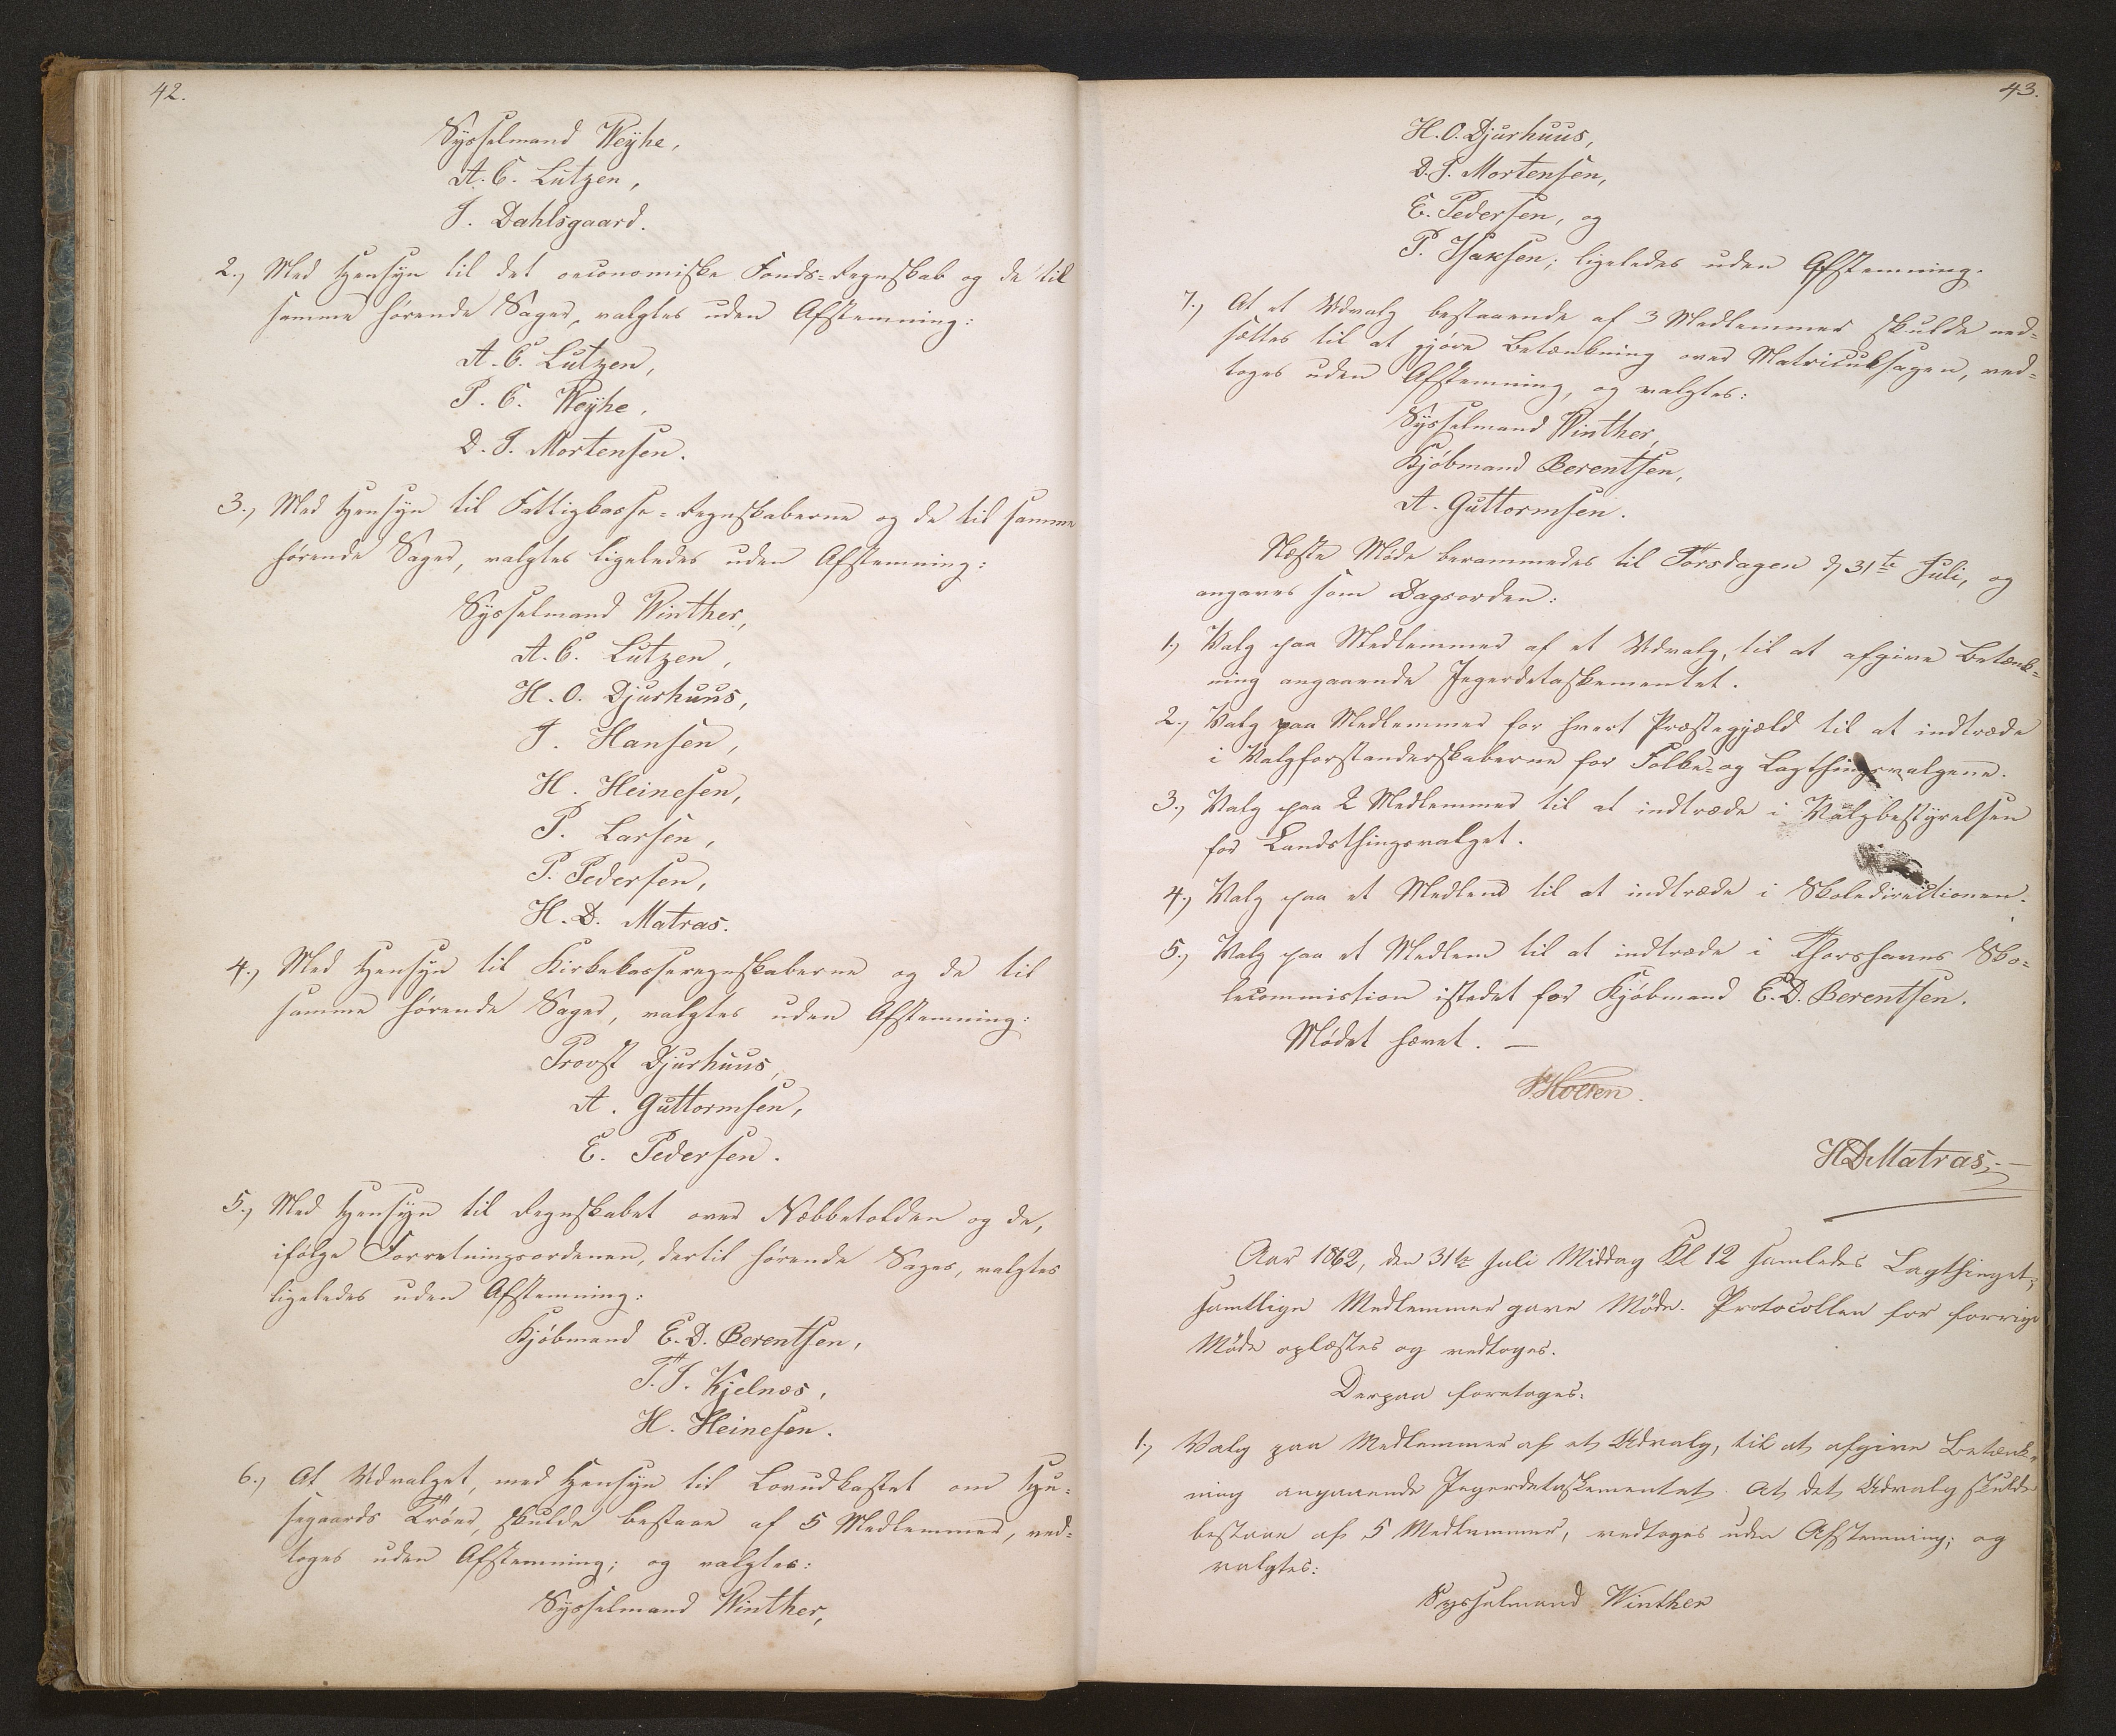 42.
Sysselmand Weyhe,
A. C. Lützen,
J. Dahlsgaard.
2., Med Hensyn til det oeconomiske Fonds-Regnskab og de til
samme hørende Sager, valgtes uden Afstemning:
A. C. Lützen,
P. C. Weyhe,
D. J. Mortensen.
3., Med Hensyn til Fattigkasse-Regnskaberne og de til samme
hørende Sager, valgtes ligeledes uden Afstemning:
Sysselmand Winther,
A. C. Lützen,
H. O. Djurhuus,
J. Hansen,
H. Heinesen,
P. Larsen,
P. Pedersen,
H. D. Matras.
4., Med Hensyn til Kirkekasseregnskaberne og de til
samme hørende Sager, valgtes uden Afstemning:
Provst Djurhuus,
A. Guttormsen,
E. Pedersen.
5., Med Hensyn til Regnskabet over Næbbetolden og de,
ifølge Forretningsordenen, dertil hørende Sager, valgtes
ligeledes uden Afstemning:
Kjøbmand E. D. Berentsen,
T. J. Kjelnæs,
H. Heinesen.
6., At Udvalget, med Hensyn til Lovudkastet om Hu-
segaards Trøer, skulde bestaae af 5 Medlemmer, ved-
toges uden Afstemning; og valgtes:
Sysselmand Winther,
43.
H. O. Djurhuus,
D. J. Mortensen,
E. Pedersen, og
P. Isaksen; ligeledes uden Afstemning.
7., At et Udvalg bestaaende af 3 Medlemmer skulde ned-
sættes til at gjøre Betænkning over Matriculsagen, ved-
toges uden Afstemning, og valgtes:
Sysselmand Winther,
Kjøbmand Berentsen,
A. Guttormsen.
Næste Møde berammedes til Torsdagen d 31te Juli, og
angaves som Dagsorden:
1.) Valg paa Medlemmer af et Udvalg, til at afgive Betænk-
ning angaaende Jegerdetaskementet.
2., Valg paa Medlemmer for hvert Præstegjæld til at indtræde
i Valgforstanderskaberne for Folke- og Lagthingsvalgene.
3., Valg paa 2 Medlemmer til at indtræde i Valgbestyrelsen
for Landsthingsvalget.
4., Valg paa et Medlem til at indtræde i Skoledirectionen.
5., Valg paa et Medlem til at indtræde i Thorshavns Sko-
lecommistion istedet for Kjøbmand E. D. Berentsen.
Mødet hævet. —
HDMatras,
Aar 1862, den 31te Juli Middag Kl 12 samledes Lagthinget;
samtlige Medlemmer gave Møde. Protocollen for forrige
Møde oplæstes og vedtoges.
Derpaa foretoges:
1., Valg paa Medlemmer af et Udvalg, til at afgive Betænk-
ning angaaende Jegerdetaskementet. At det Udvalg skulde
bestaae af 5 Medlemmer, vedtoges uden Afstemning; og
valgtes:
Sysselmand Winther